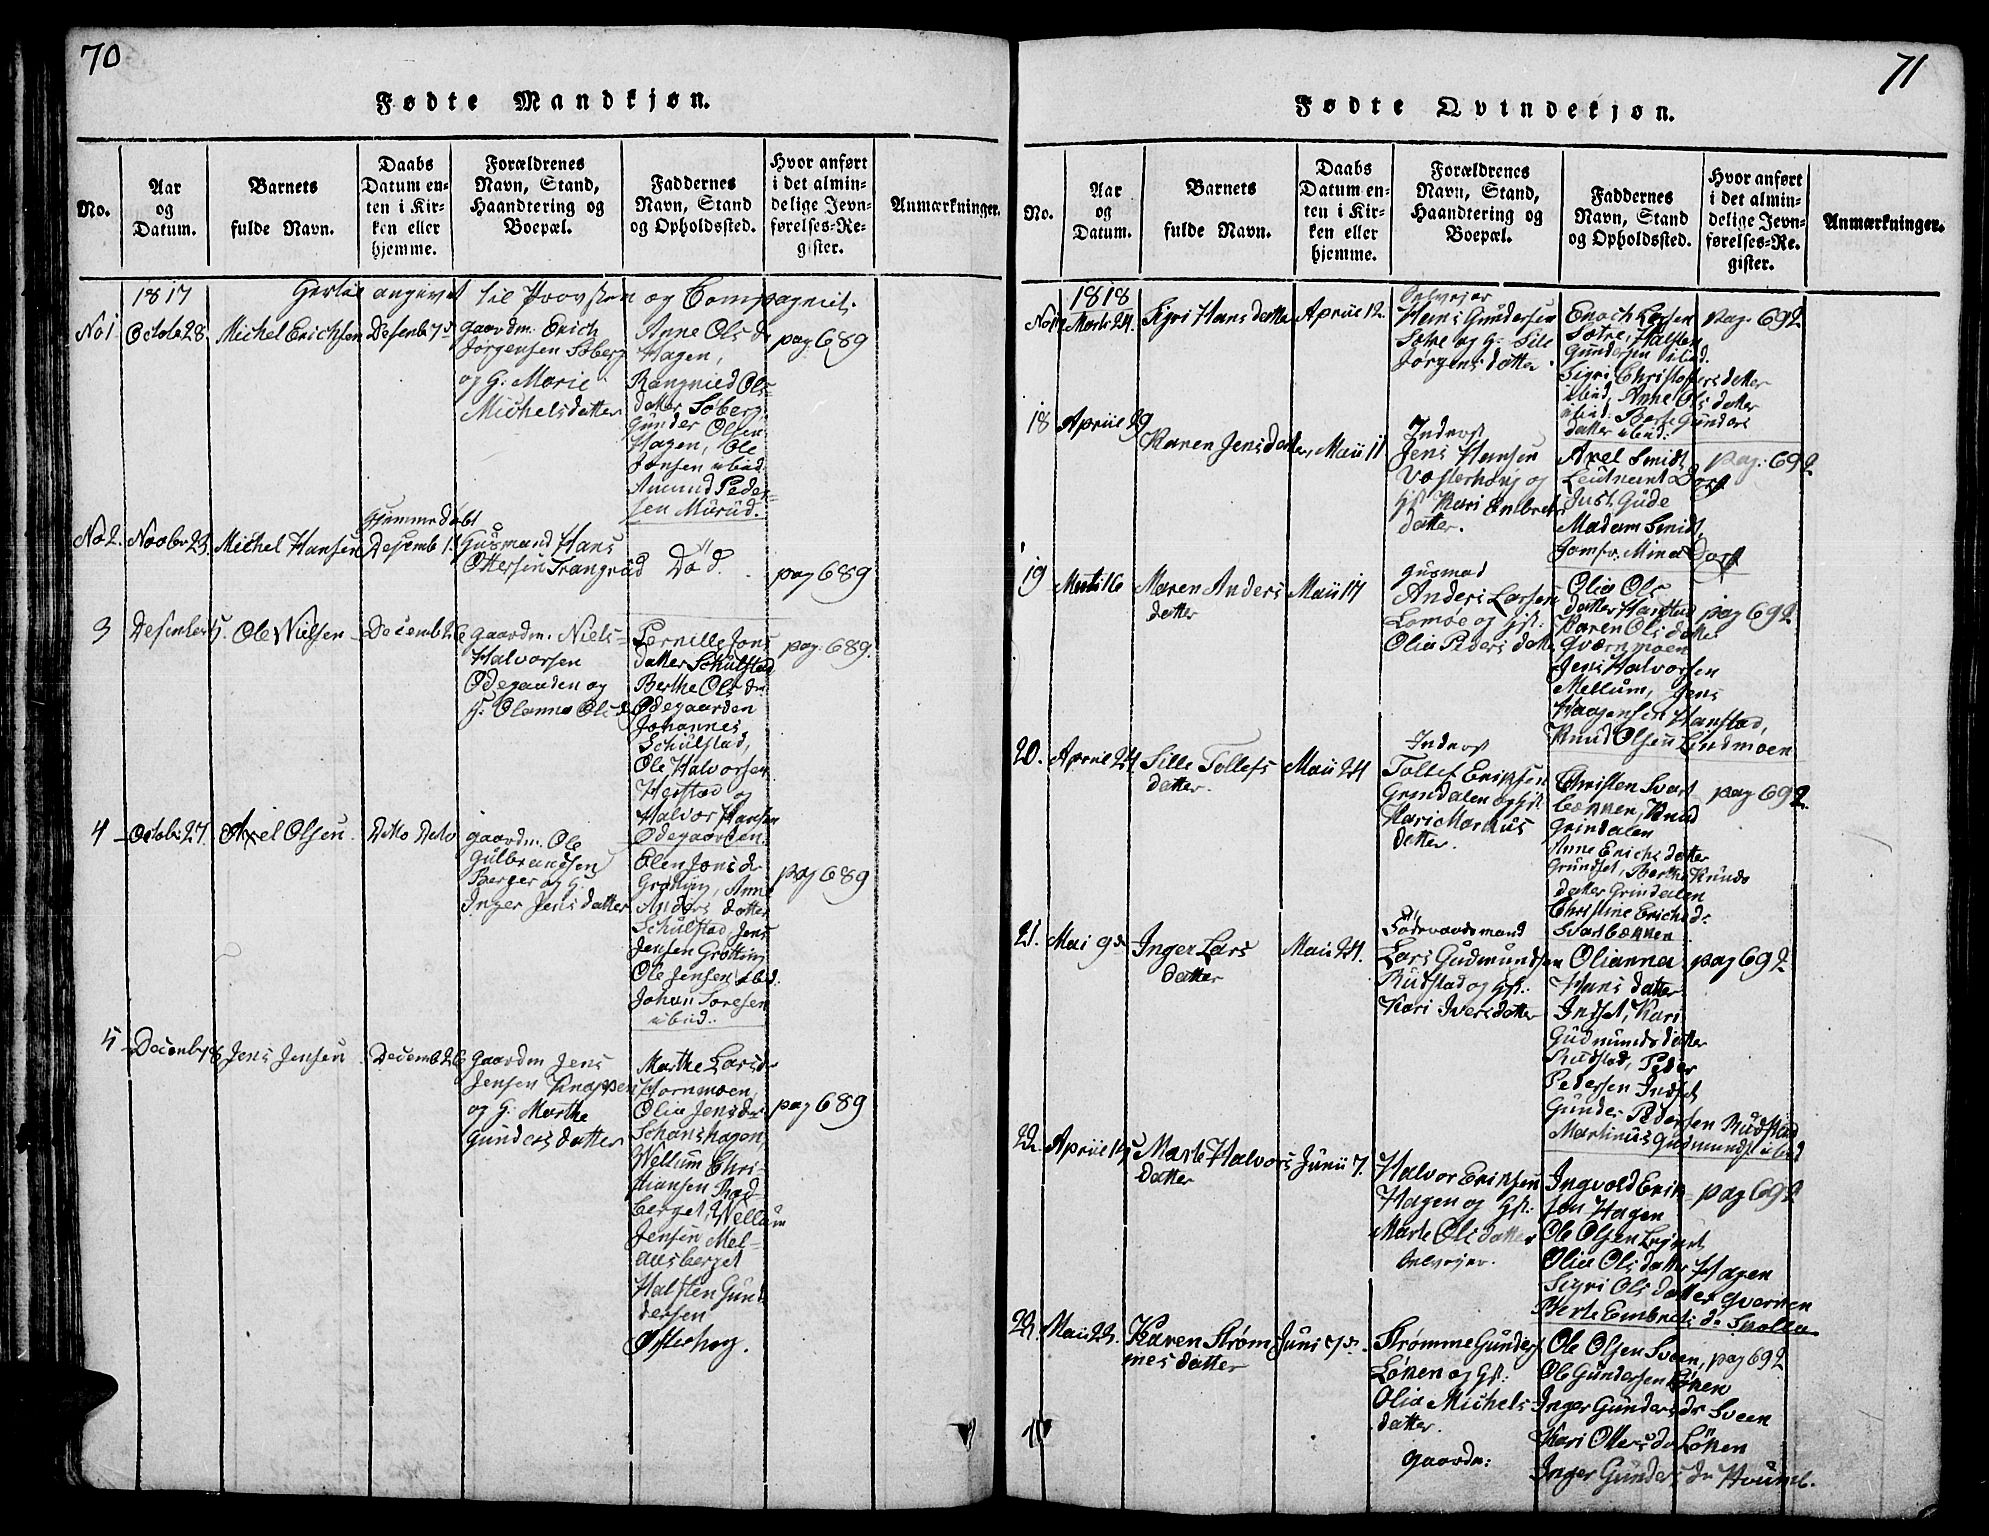 70
Fødte Mandkjøn.
No.
Aar
og
Datum.
Barnets
fulde Navn.
Daabs
Datum en-
ten i Kir-
ken eller
hjemme.
Forældrenes
Navn, Stand,
Haandtering og
Boepæl.
Faddernes
Navn, Stand
og Opholdssted.
Hvor anført
i det almin-
delige Jevn-
førelses-Re-
gister.
Anmærkninger.
1817
angivet til Provsten og Compagniet.
No 1
Octobr 28.
Michel Erichsen
Desenb 7de
gaardm. Erich
Jørgensen Soberg
og G. Marie
Michelsdatter
Anne Ols dr
Hagen,
Rangnied Ols-
datter Soberg
Gunder Olsen
Hagen, Ole
Jonsen ibid
Amund Peder-
sen Mürüd.
pag 689
No 2.
Novbr 23.
Michel Hansen
Hjemme døbt
Desemb
Husmand Hans
Ottersen Trangrud
Død.
pag 689
3
Desember 5.
Ole Nielsen
Decemb 26
gaardm. Niels
Halvorsen
Ødegaarden og
G. Olenna Ols d
Pernille Jons
datter Schülstad
Berthe Ols dr
Ødegaarden
Johannes
Schülstad,
Ole Halvorsen
Herstad og
Halvor Hansen
Ødegaarden.
pag. 689.
4
Octobr 27.
Axel Olsen.
Ditto Dato
gaardm. Ole
Gülbrandsen
Berger og G.
Inger Jensdatter
Elen Jons dr
Grøting, Anne
Anders datter
Schülstad, Jens
Jensen Grøtting
Ole Jensen ibid.
Johan Toresen
ibid.
pag 689
5
Decenb 18
Jens Jensen
Decemb 26
gaardm Jens
Jensen Knappen
og G. Marthe
Gündersdatter
Marthe Lars dr
Hornmoen,
Olia Jensdr
Schanshagen,
Wellum Chri-
stiansen Rød
berget, Wellum
Jensen Mel-
ausberget
Halsten Gün-
dersen
Østerhog.
pag 689
71
Fødte Qvindekjøn.
No.
Aar
og
Datum.
Barnets
fulde Navn.
Daabs
Datum en-
ten i Kir-
ken eller
hjemme.
Forældrenes
Navn, Stand,
Haandtering og
Boepæl.
Faddernes
Navn, Stand
og Opholdssted.
Hvor anført
i det almin-
delige Jevn-
førelses-Re-
gister.
Anmærkninger.
1818
No 17
Marts 24.
Sigri Hans datter
Apriil 12.
Selvejer
Hans Gündersen
Sætre og G. Sile
Jørgensdatter.
Enoch Larsen
Sætre, Halsten
Gündersen ibid.
Sigri Christophersdatter
ibid, Anne Olsdatter
ibid. Berte Gunders
datter ibid.
pag. 692
18
Apriil 29
Karen Jensdatter,
Maii 11
Inderst
Jens Hansen
Vesterhaug og
Hst Kari Embrets
datter.
Axel Smidt
Leutnant Dorf
Just Gude
Madam Smidt,
Jomfr. Mina Dorf
pag. 692
19
Marts 16
Maren Anders
datter
Maii 17
Husmad
Anders Larsen
Lomoe og Hst.
Olia Peders datter
Olia Ols
datter Hanstad
Karen Olsdatter
Qværnmoen
Jens Halvorsen
Mellum, Jens
Haagensen Hanstad,
Knud Olsen Lindmoen
pag 692
20.
Apriil 24.
Sille Tollefs
datter.
Maii 24
Inderst
Tollef Eriksen
Grindalen og Hst
Kari Markus
datter.
Christen Svart
bækken, Knud
Grindalen
Anne Erichs datter
Grundset, Berthe Knuds
datter Grindalen
Christine Erichsdr
Svartbækken
pag 692.
21.
Mai 9de
Inger Lars
datter
Maii 24.
Lars Gudmundsen
Rudstad og Hst.
Kari Iversdatter
Olianna
Hans datter
Indset, Kari
Gudmundsdatter
Rudstad, Peder
Pedersen Indset
Günder Pedersen Rudstad
Martinus Gudmunds ibid
pag 692
22.
Apriil 15
Marte Halvors
datter
Junii 7.
Halvor Eriksen
Hagen og Hst.
Marte Olsdatter
Selvejer.
Ingvold Erik
sen Hagen
Ole Olsen
Olia Olsdatter Hagen
Sigri Olsdatter Qvernen
Berte Embrets dr Svolla
pag 692
23.
Maii 23.
Karen Strøm
mesdatter
Juni 7de.
Strømme Gunders
Løken og Hst.
Olia Michels-
datter.
Gaardm:
Ole Olsen Sveen,
Ole Gündersen Løken
Inger Günders dr Sveen
Kari Ottersdr Løken
Inger Gunders dr
pag 692